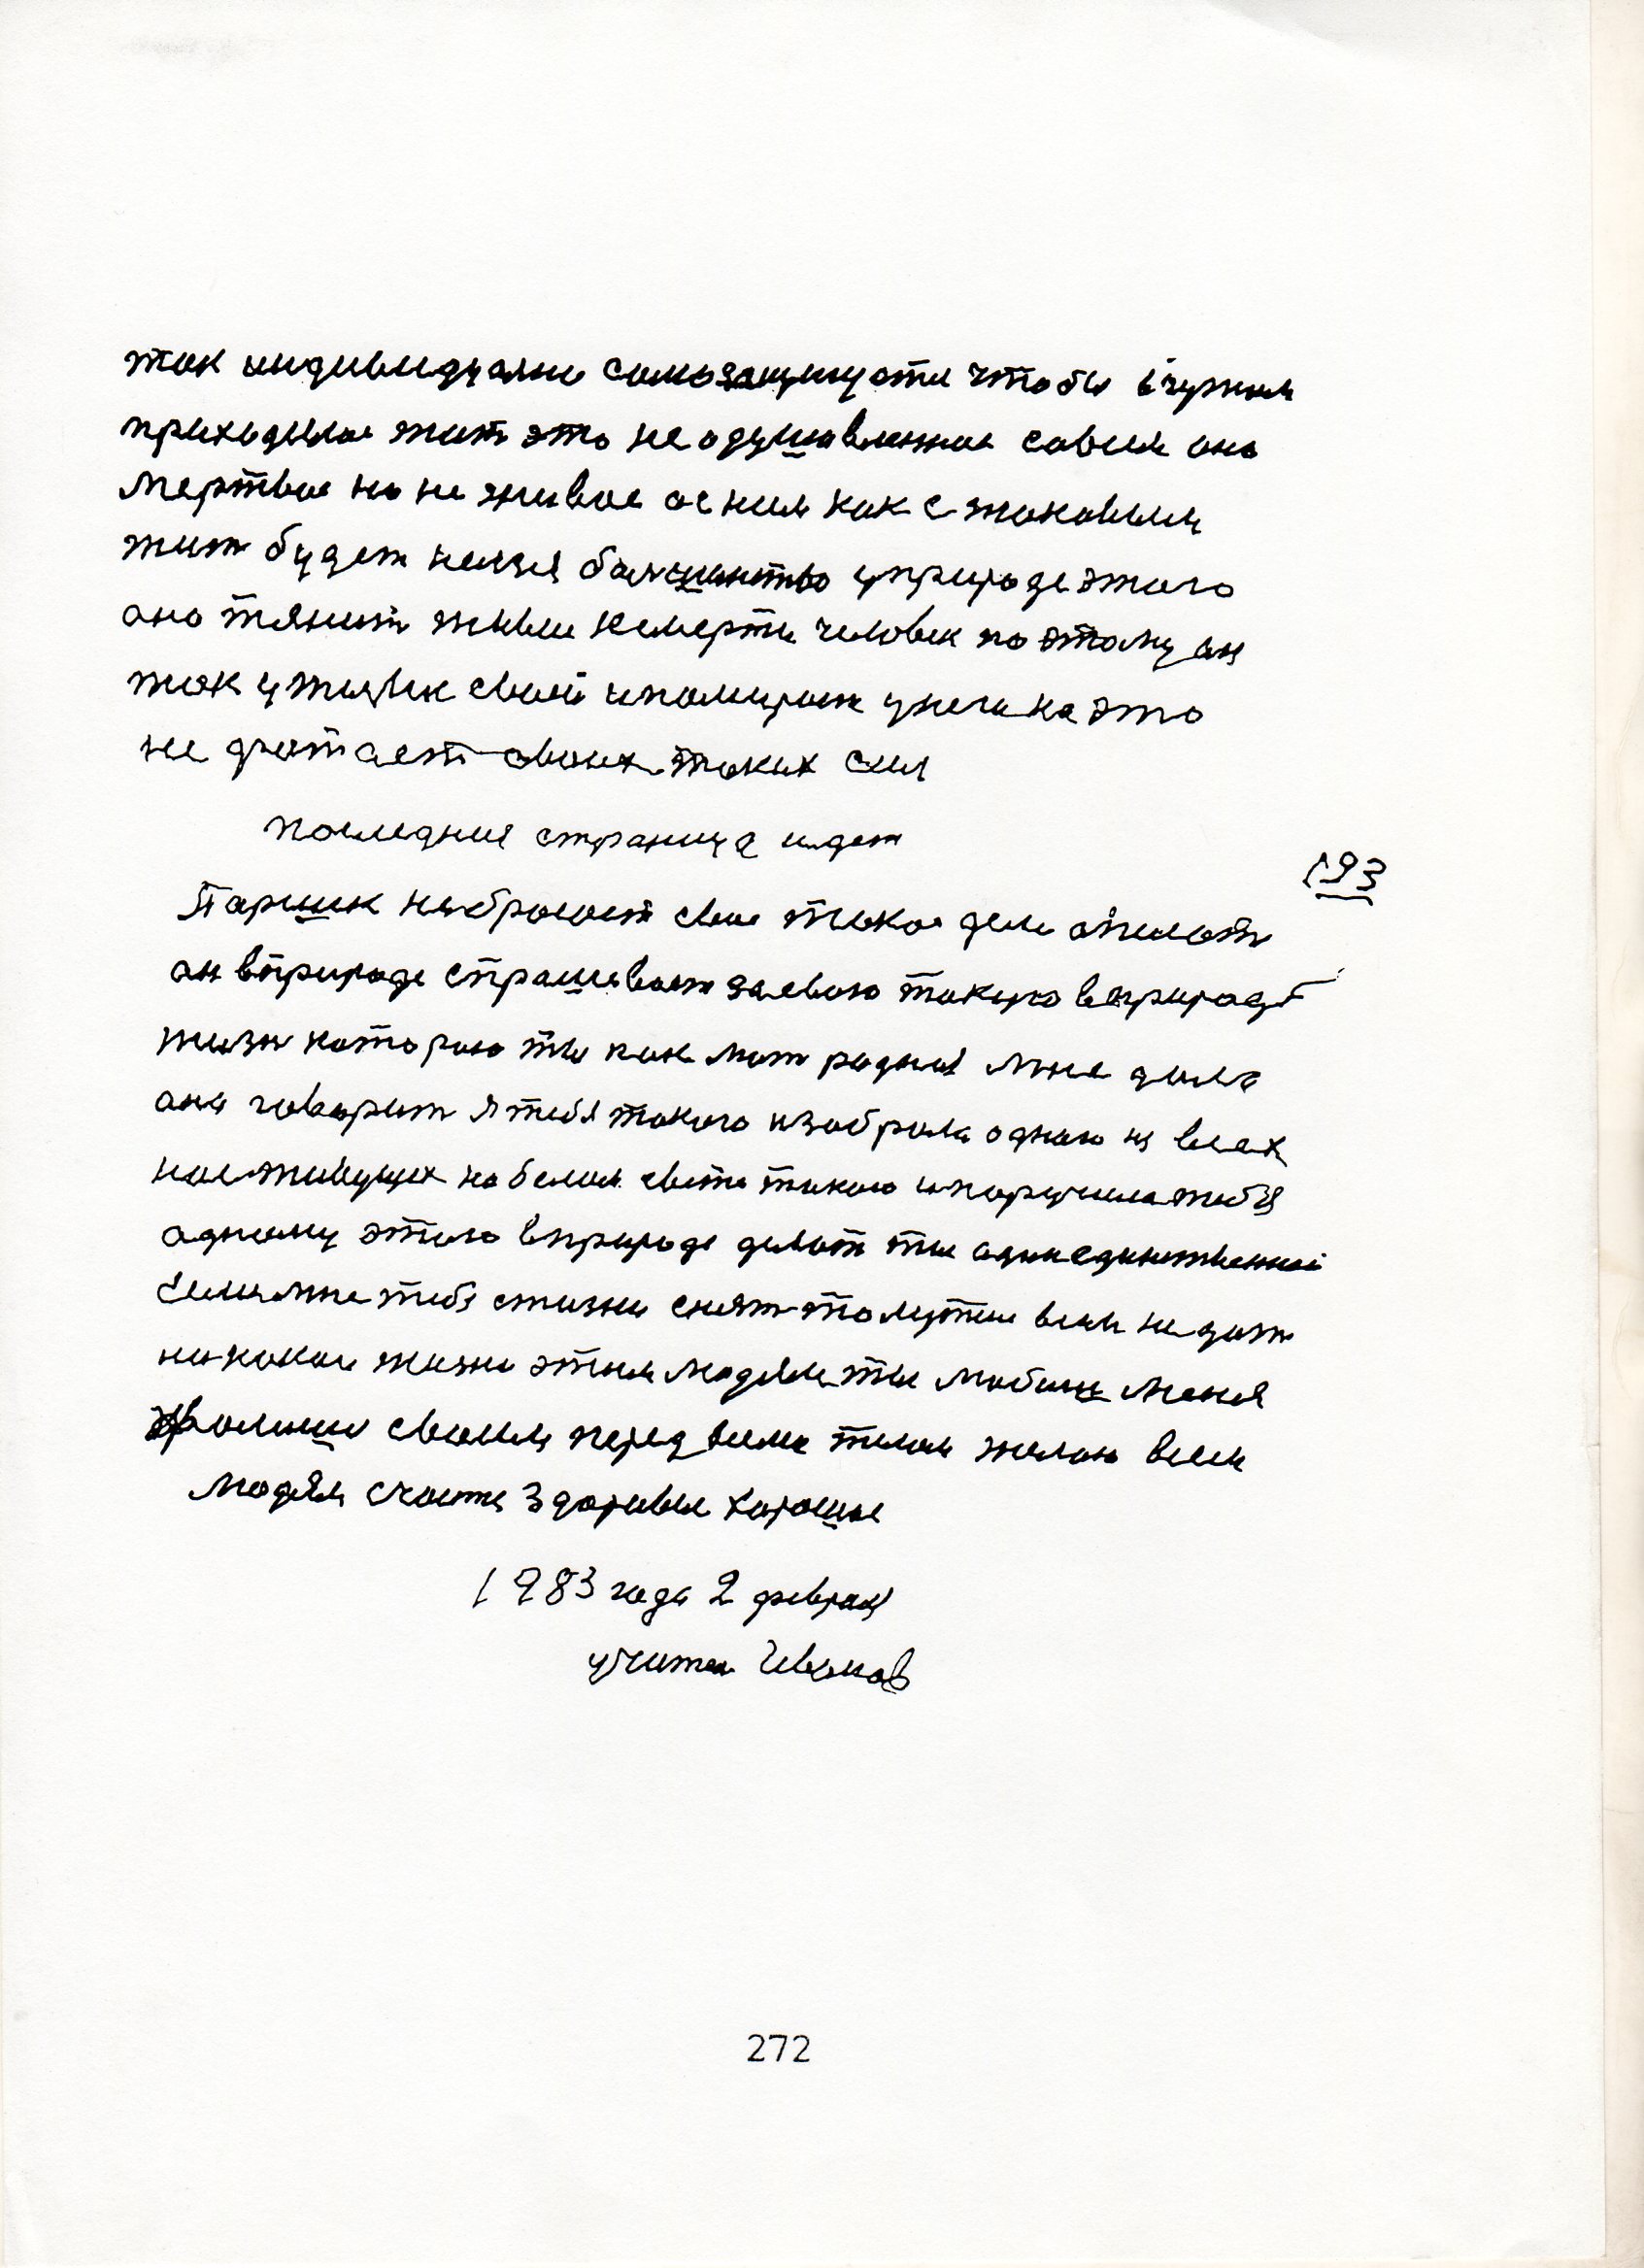 так индивидуално самозащищоти чтобы вчужом
приходилос жит это не одушавленное совсем оно
мертвое но не живое ас ним как с таковым
жит будет нелзя болшинство уприроде этого
оно тянит живые ксмерти человек поэтому он
так утирвне своей ипомирает унего на это
не фатает своих таких сил
последния страница идет
193
Паршик небросает свое такое дело описат
он вприроде спрашевает засвою такую вприроде
жизн каторою ты как мат родная мне дала
она говорит я тебя такого изобрала одною из всех
нас живущих на белом свете такою ипоручила тебя
одному этого вприроде делат ты одинединственый
Если мне тебя сжизни снят то лутше всем не дат
никакои жизни этим людям ты любиш меня
хволиши своим перед всеми телом желаю всем
людям счастя здоровья хорошие
1983 года 2 феврал
учител Иванов
272